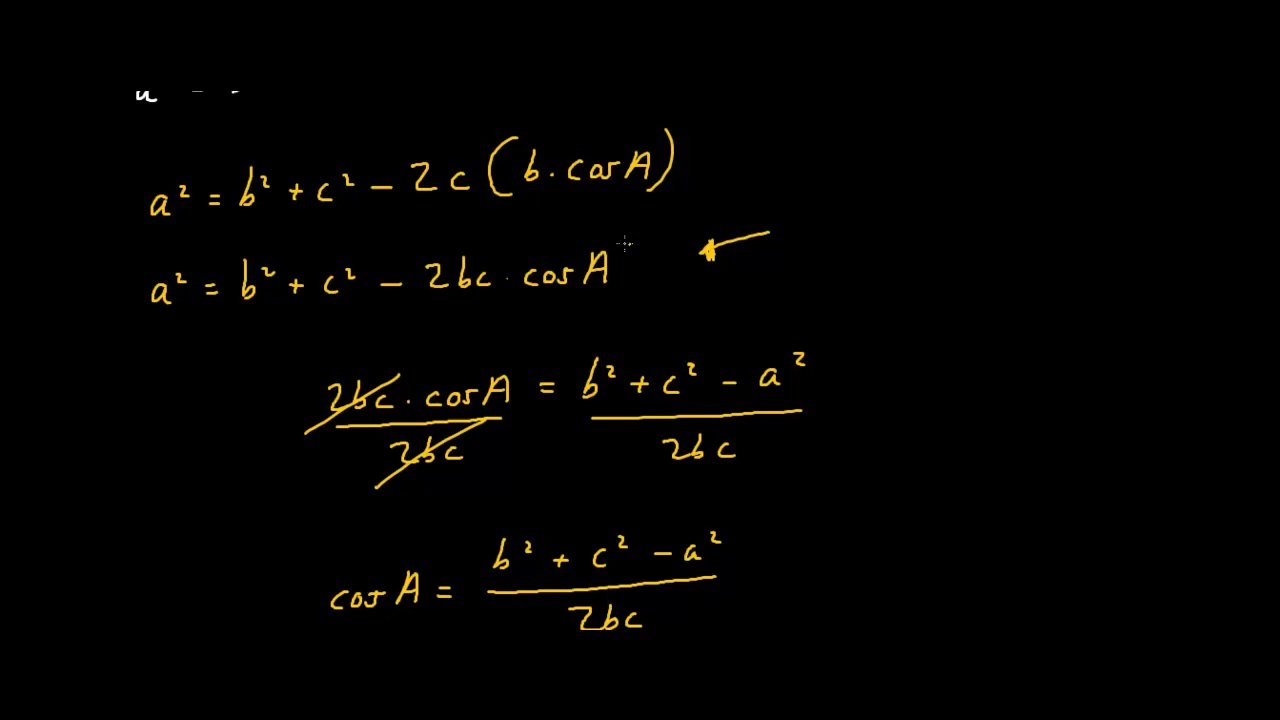 a² = b² + c² - 2c (b · cosA)
a² = b² + c² - 2bc · cosA
2bc · cosA / 2bc = b² + c² - a² / 2bc
cosA = b² + c² - a² / 2bc